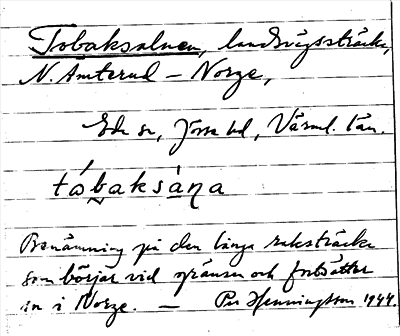 Tobaksalnen, landsvägssträcka,
N. Åmterud – Norge,
Eda sn, Jösse hd, Värml. län.
tóbaksána
Benämning på den långa raksträcka
som börjar vid gränsen och fortsätter
in i Norge. — Per Henningsson 1944.